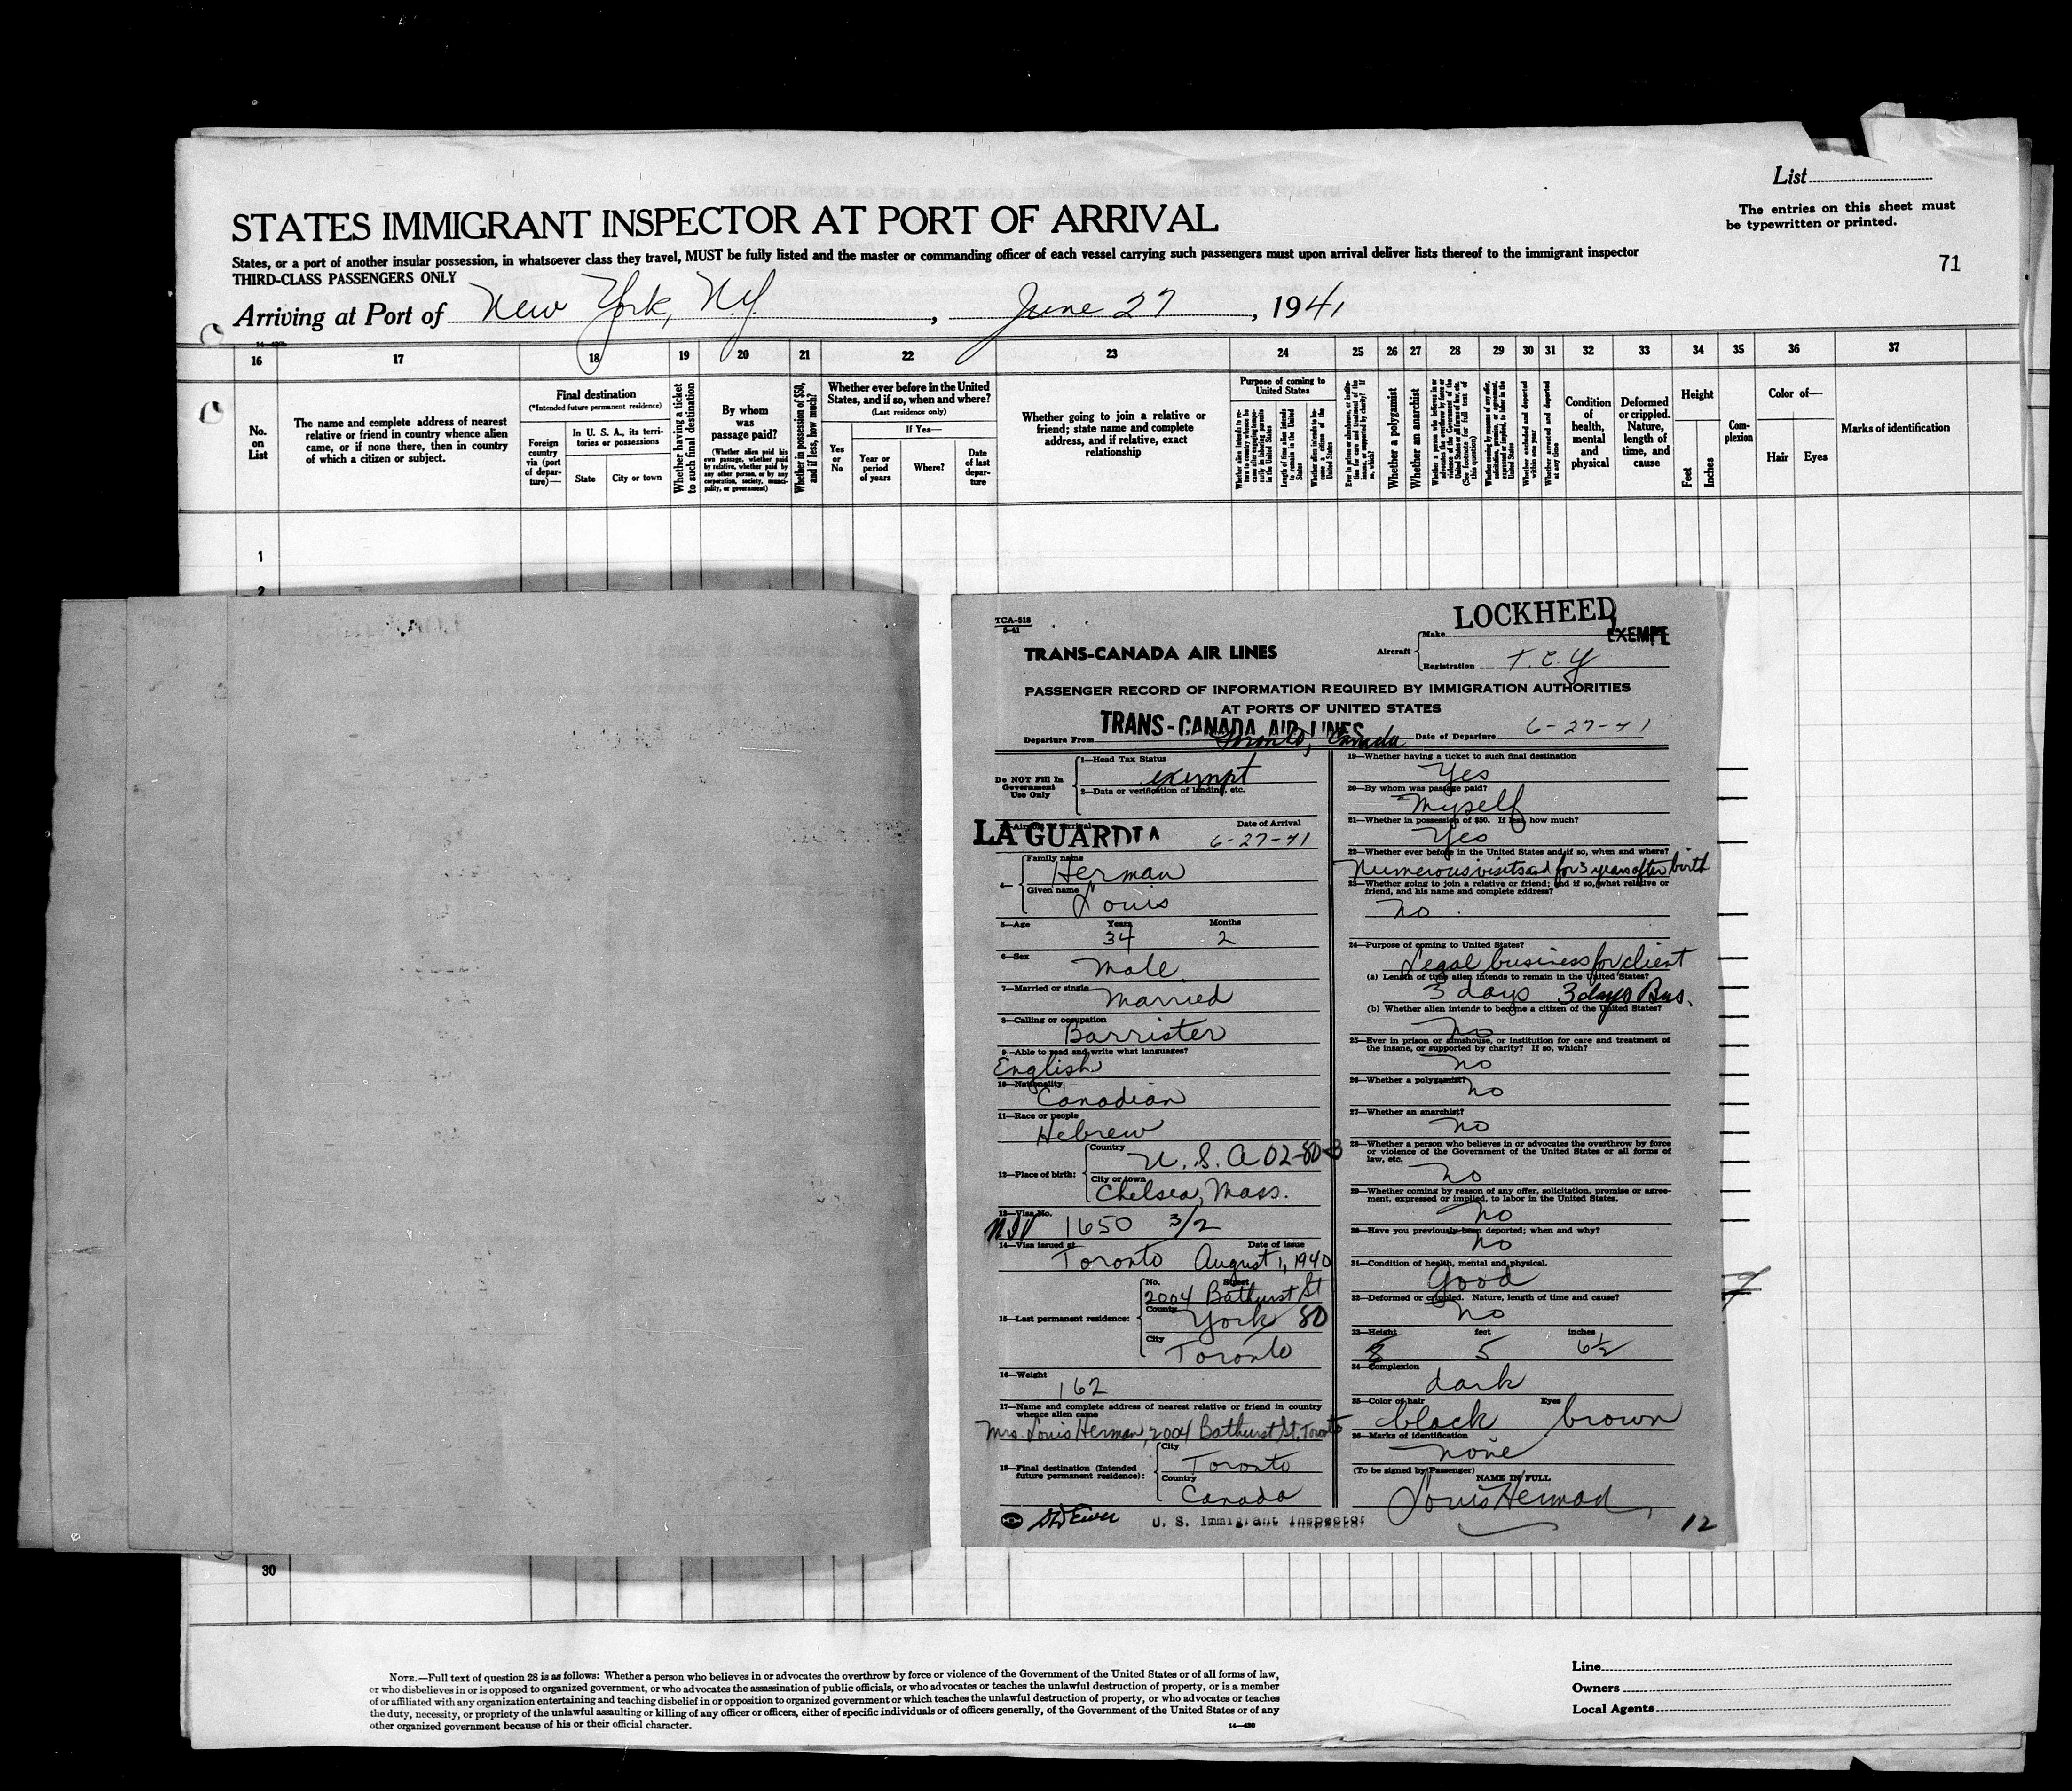 List
The entries on this sheet must
be typewritten or printed.
STATES IMMIGRANT INSPECTOR AT PORT OF ARRIVAL
States, or a port of another insular possession, in whatsoever class they travel, MUST be fully listed and the master or commanding officer of each vessel carrying such passengers must upon arrival deliver lists thereof to the immigrant inspector
THIRD-CLASS PASSENGERS ONLY
71
Arriving at Port of New York, N.Y. , June 27, 1941
16 17 18 19 20 21 22 23 24 25 26 27 28 29 30 31 32 33 34 35 36 37
No.
on
List
The name and complete address of nearest
relative or friend in country whence alien
came, or if none there, then in country
of which a citizen or subject.
Final destination
(*Intended future permanent residence)
Foreign
country
via (port
of depar-
ture)—
In U. S. A., its terri-
tories or possessions
State
City or town
Whether having a ticket
to such final destination
By whom
was
passage paid?
(Whether alien paid his
own passage, whether paid
by relative, whether paid by
any other person, or by any
corporation, society, munici-
pality, or government)
Whether in possession of $50,
and if less, how much?
Whether ever before in the United
States, and if so, when and where?
(Last residence only)
Yes
or
No
If Yes—
Year or
period
of years
Where?
Date
of last
depar-
ture
Whether going to join a relative or
friend; state name and complete
address, and if relative, exact
relationship
Purpose of coming to
United States
Length of time alien intends
to remain in the United
States
Whether alien intends to be-
come a citizen of the
United States
Whether a polygamist
Whether an anarchist
Whether excluded and deported
within one year
Whether arrested and deported
at any time
Condition
of
health,
mental
and
physical
Deformed
or crippled.
Nature,
length of
time, and
cause
Height
Feet
Inches
Com-
plexion
Color of—
Hair
Eyes
Marks of identification
1
2
TCA-518
5-41
LOCKHEED
EXEMPT
TRANS-CANADA AIR LINES
Aircraft
Make
Registration T.C.Y
PASSENGER RECORD OF INFORMATION REQUIRED BY IMMIGRATION AUTHORITIES
AT PORTS OF UNITED STATES
TRANS-CANADA AIR LINES
Departure From Toronto, Canada Date of Departure 6-27-41
Do NOT Fill In
Government
Use Only
1—Head Tax Status
exempt
2—Data or verification of landing, etc.
LA GUARDIA
Date of Arrival
6-27-41
4—
Family name
Herman
Given name
Louis
5—Age Years Months
34 2
6—Sex
Male
7—Married or single
Married
8—Calling or occupation
Barrister
9—Able to read and write what languages?
English
10—Nationality
Canadian
11—Race or people
Hebrew
12—Place of birth:
Country
U. S. A 02-80-3
City or town
Chelsea, Mass.
13—Visa No.
NIV 1650 3/2
14—Visa issued at Date of issue
Toronto August 1, 1940
15—Last permanent residence:
No. Street
2004 Bathurst St
County
York 80
City
Toronto
16—Weight
162
17—Name and complete address of nearest relative or friend in country
whence alien came
Mrs. Louis Herman, 2004 Bathurst St. Toronto
18—Final destination (Intended
future permanent residence):
City
Toronto
Country
Canada
U. S. Immigrant Inspector
19—Whether having a ticket to such final destination
Yes
20—By whom was passage paid?
Myself
21—Whether in possession of $50. If less, how much?
Yes
22—Whether ever before in the United States and if so, when and where?
Numerous visits and for 3 years after birth
23—Whether going to join a relative or friend; and if so, what relative or
friend, and his name and complete address?
no
24—Purpose of coming to United States?
Legal business for client
(a) Length of time alien intends to remain in the United States?
3 days 3 days Bus.
(b) Whether alien intends to become a citizen of the United States?
No
25—Ever in prison or almshouse, or institution for care and treatment of
the insane, or supported by charity? If so, which?
no
26—Whether a polygamist?
no
27—Whether an anarchist?
no
28—Whether a person who believes in or advocates the overthrow by force
or violence of the Government of the United States or all forms of
law, etc.
no
29—Whether coming by reason of any offer, solicitation, promise or agree-
ment, expressed or implied, to labor in the United States.
no
30—Have you previously been deported; when and why?
no
31—Condition of health, mental and physical.
Good
32—Deformed or crippled. Nature, length of time and cause?
no
33—Height feet inches
5 6½
34—Complexion
dark
35—Color of hair Eyes
black brown
36—Marks of identification
none
(To be signed by Passenger)
NAME IN FULL
Louis Herman
12
30
NOTE.—Full text of question 28 is as follows: Whether a person who believes in or advocates the overthrow by force or violence of the Government of the United States or of all forms of law,
or who disbelieves in or is opposed to organized government, or who advocates the assassination of public officials, or who advocates or teaches the unlawful destruction of property, or is a member
of or affiliated with any organization entertaining and teaching disbelief in or opposition to organized government or which teaches the unlawful destruction of property, or who advocates or teaches
the duty, necessity, or propriety of the unlawful assaulting or killing of any officer or officers, either of specific individuals or of officers generally, of the Government of the United States or of any
other organized government because of his or their official character.
14—430
Line
Owners
Local Agents